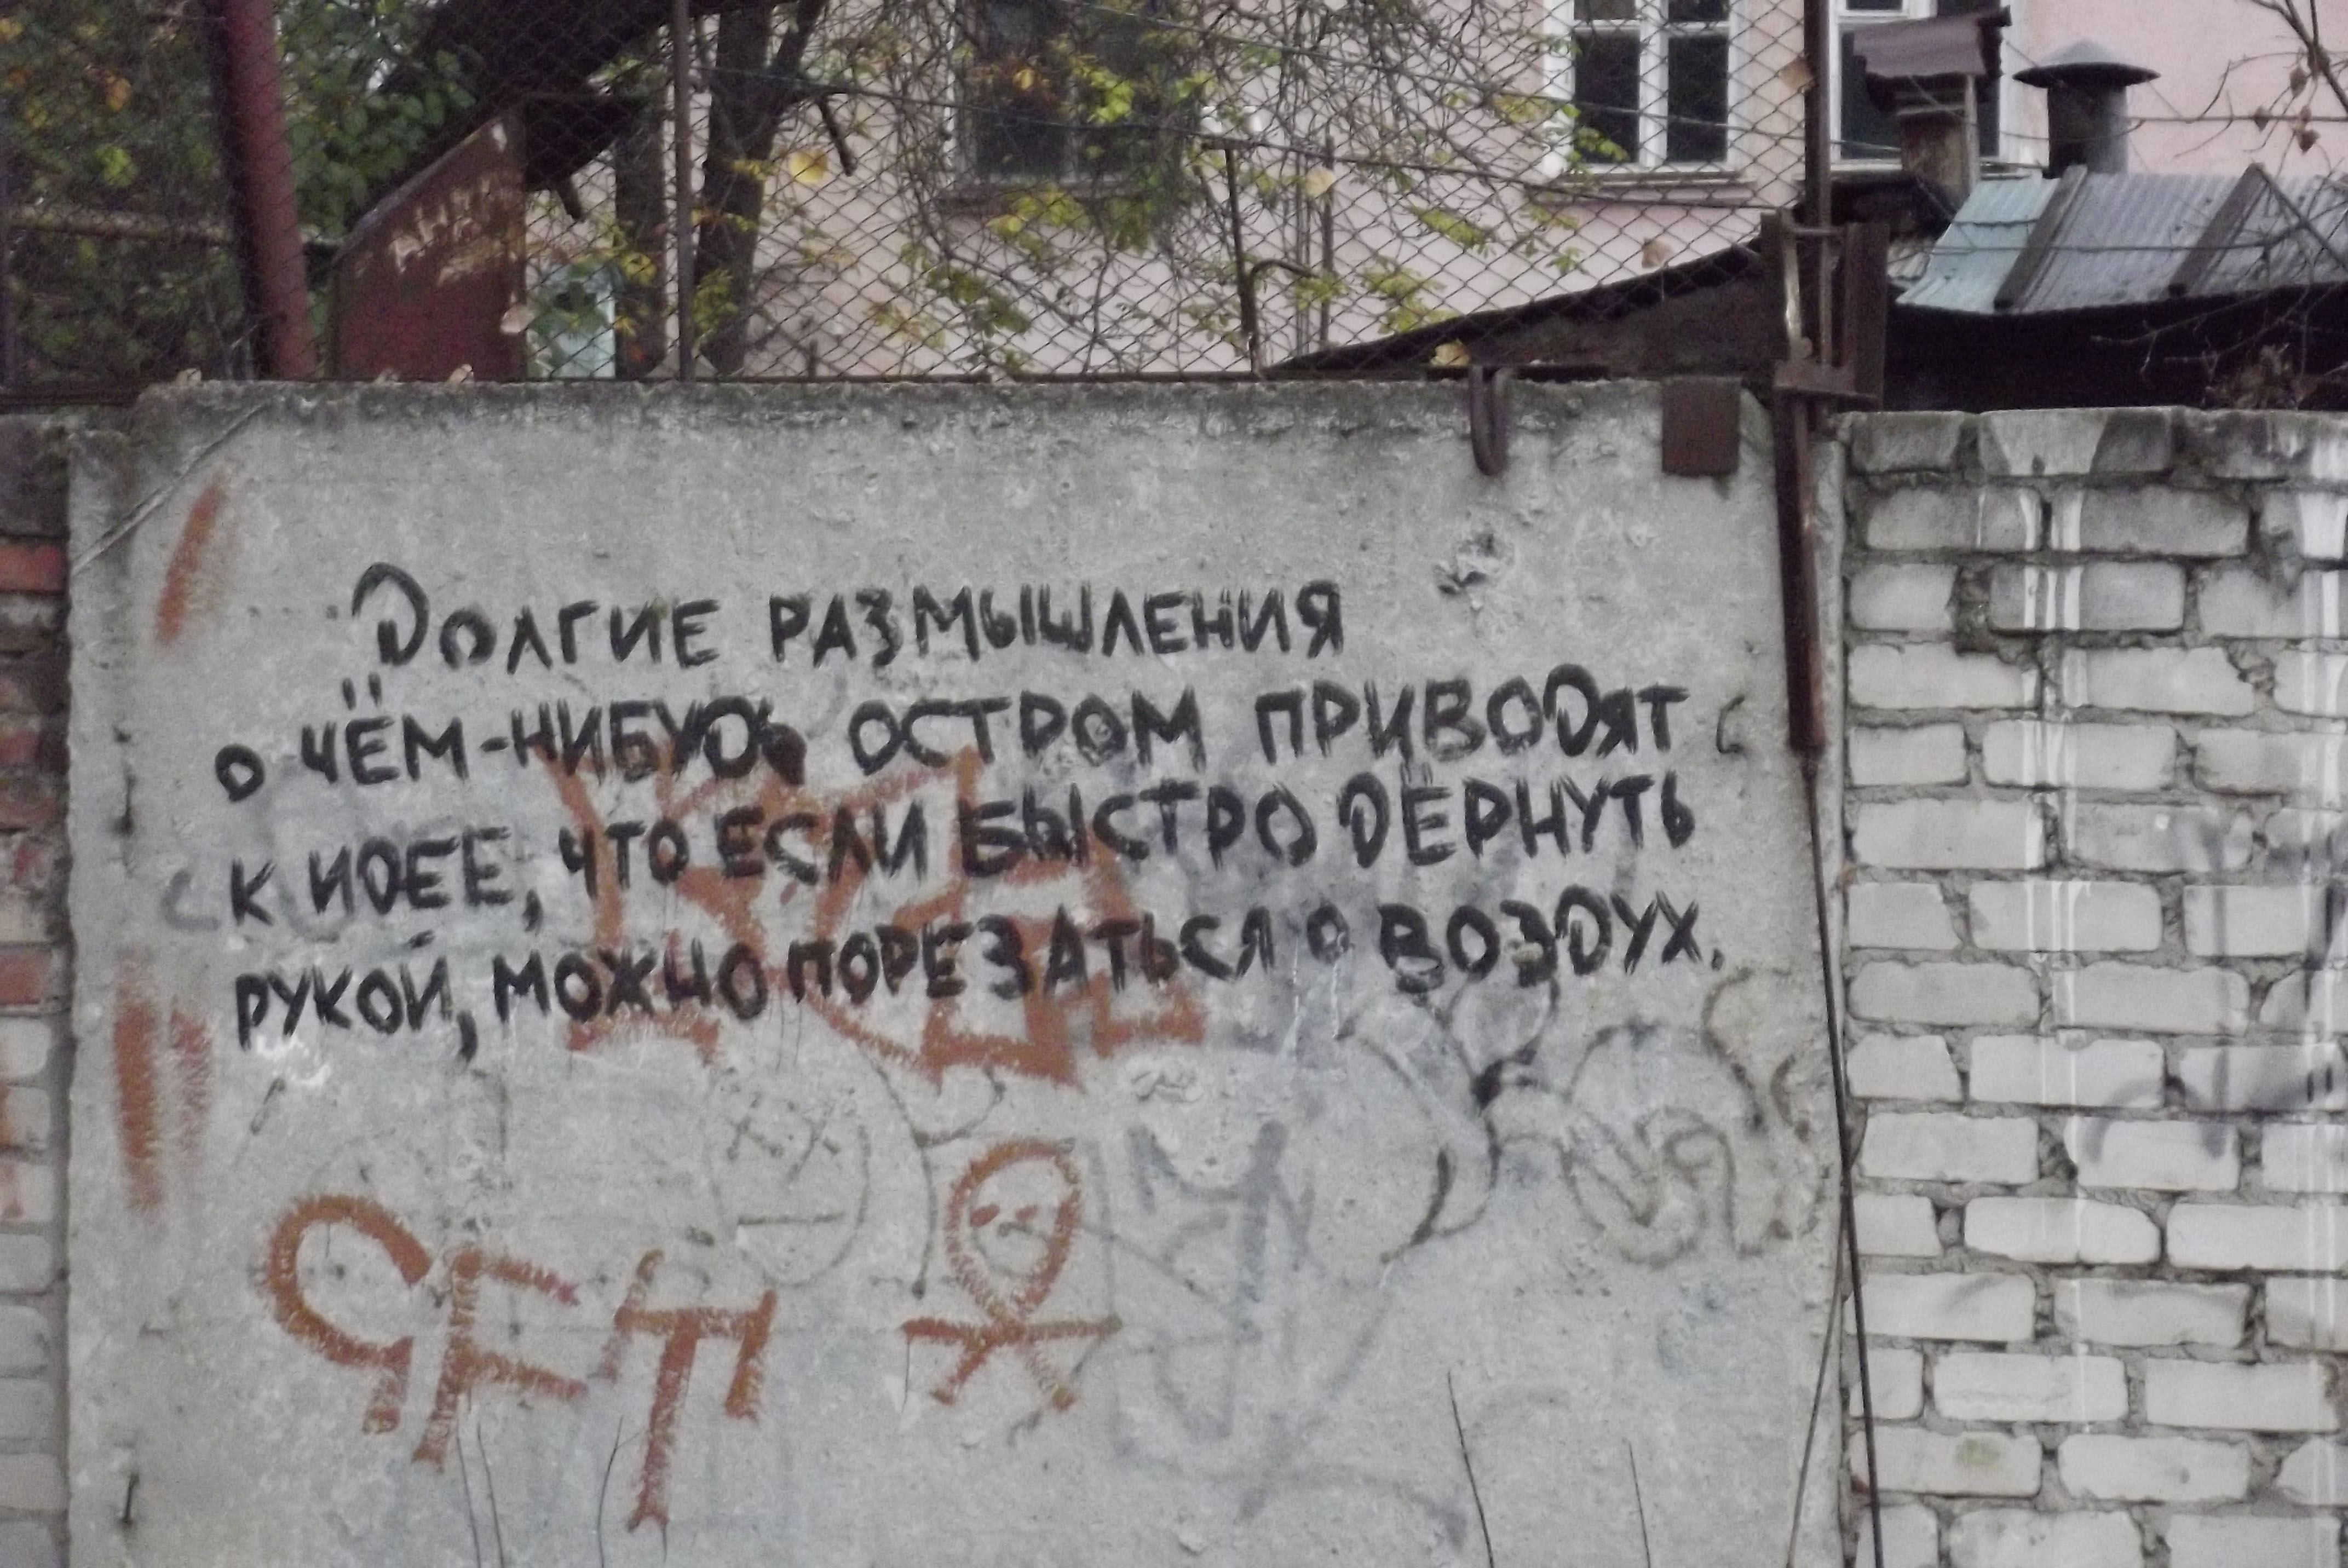 Долгие размышления
о чём-нибудь остром приводят
к идее, что если быстро дёрнуть
рукой, можно порезаться о воздух.